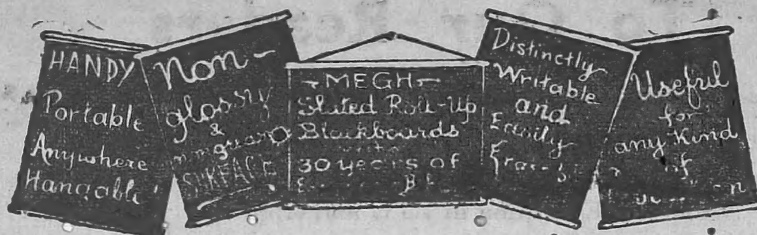 HANDY
Portable
Anywhere
Hangable
Non-
glossy
&
SURFACE
-MEGH-
Slated Roll-Up
Blackboards
30 years of
Distinctly
Writable
and
Easily
Useful
for
any Kind
of